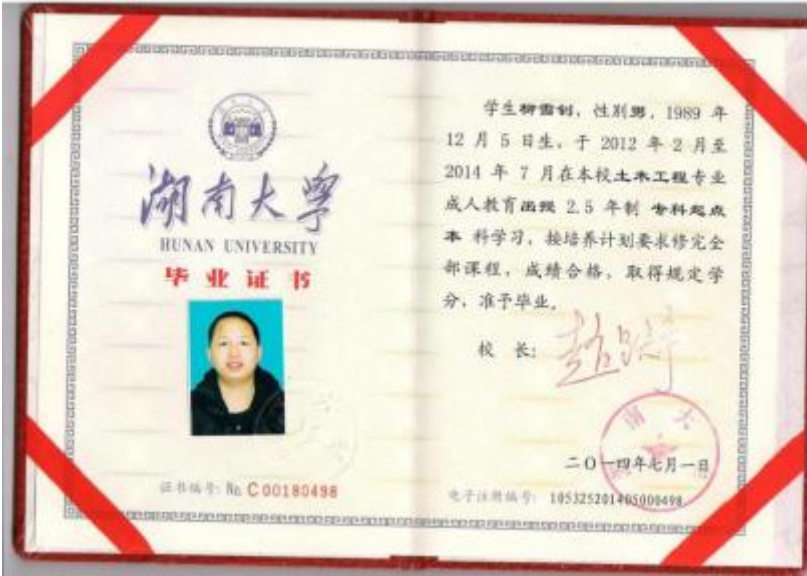 湖南大学
HUNAN UNIVERSITY
毕业证书
证书编号: No. C00180498
学生柳雪钊, 性别男, 1989 年
12 月 5 日生, 于 2012 年 2 月至
2014 年 7 月在本校土木工程专业
成人教育函授 2.5 年制 专科起点
本 科学习, 按培养计划要求修完全
部课程, 成绩合格, 取得规定学
分, 准予毕业。
校 长:
二〇一四年七月一日
电子注册编号: 105325201405000498